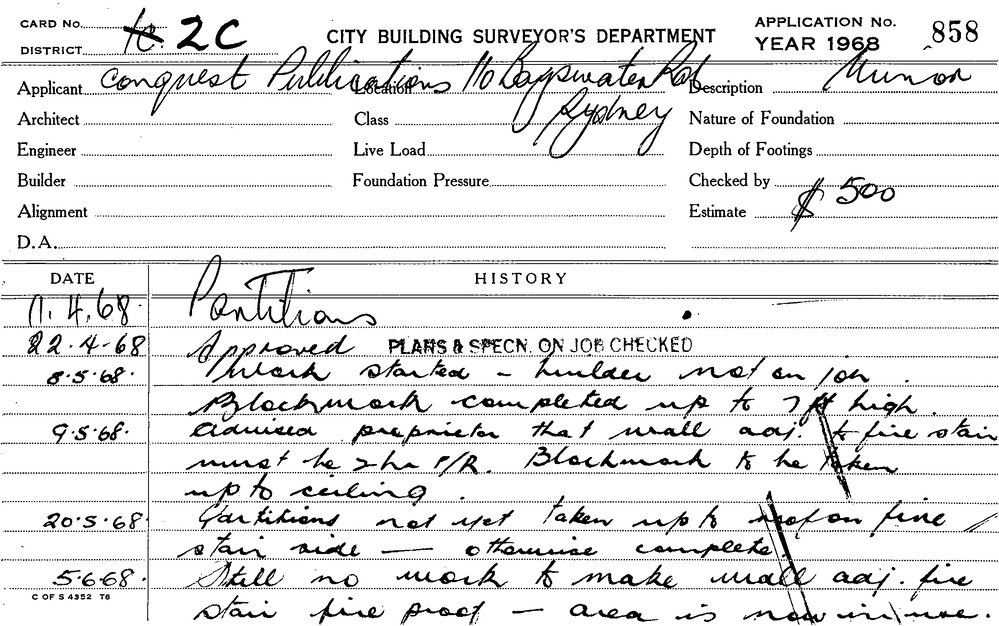 CARD No. 2C
DISTRICT
CITY BUILDING SURVEYOR'S DEPARTMENT
APPLICATION No. 858
YEAR 1968
Applicant Conquest Publications Location 116 Bayswater Rd Description Minor
Architect Class Sydney Nature of Foundation
Engineer Live Load Depth of Footings
Builder Foundation Pressure Checked by
Alignment Estimate $500
D.A.
DATE HISTORY
11.4.68. Partitions
22.4.68 Approved PLANS & SPECN. ON JOB CHECKED
8.5.68. Work started - builder not on job.
Blockwork completed up to 7ft high.
9.5.68. Advised proprietor that wall adj. to fire stair
must be 2hr F/R. Blockwork to be taken
up to ceiling.
20.5.68 Partitions not yet taken up to roof on fire
stair side — otherwise complete
5.6.68. Still no work to make wall adj. fire
stair fire proof - area is now in use.
C OF S 4352 76